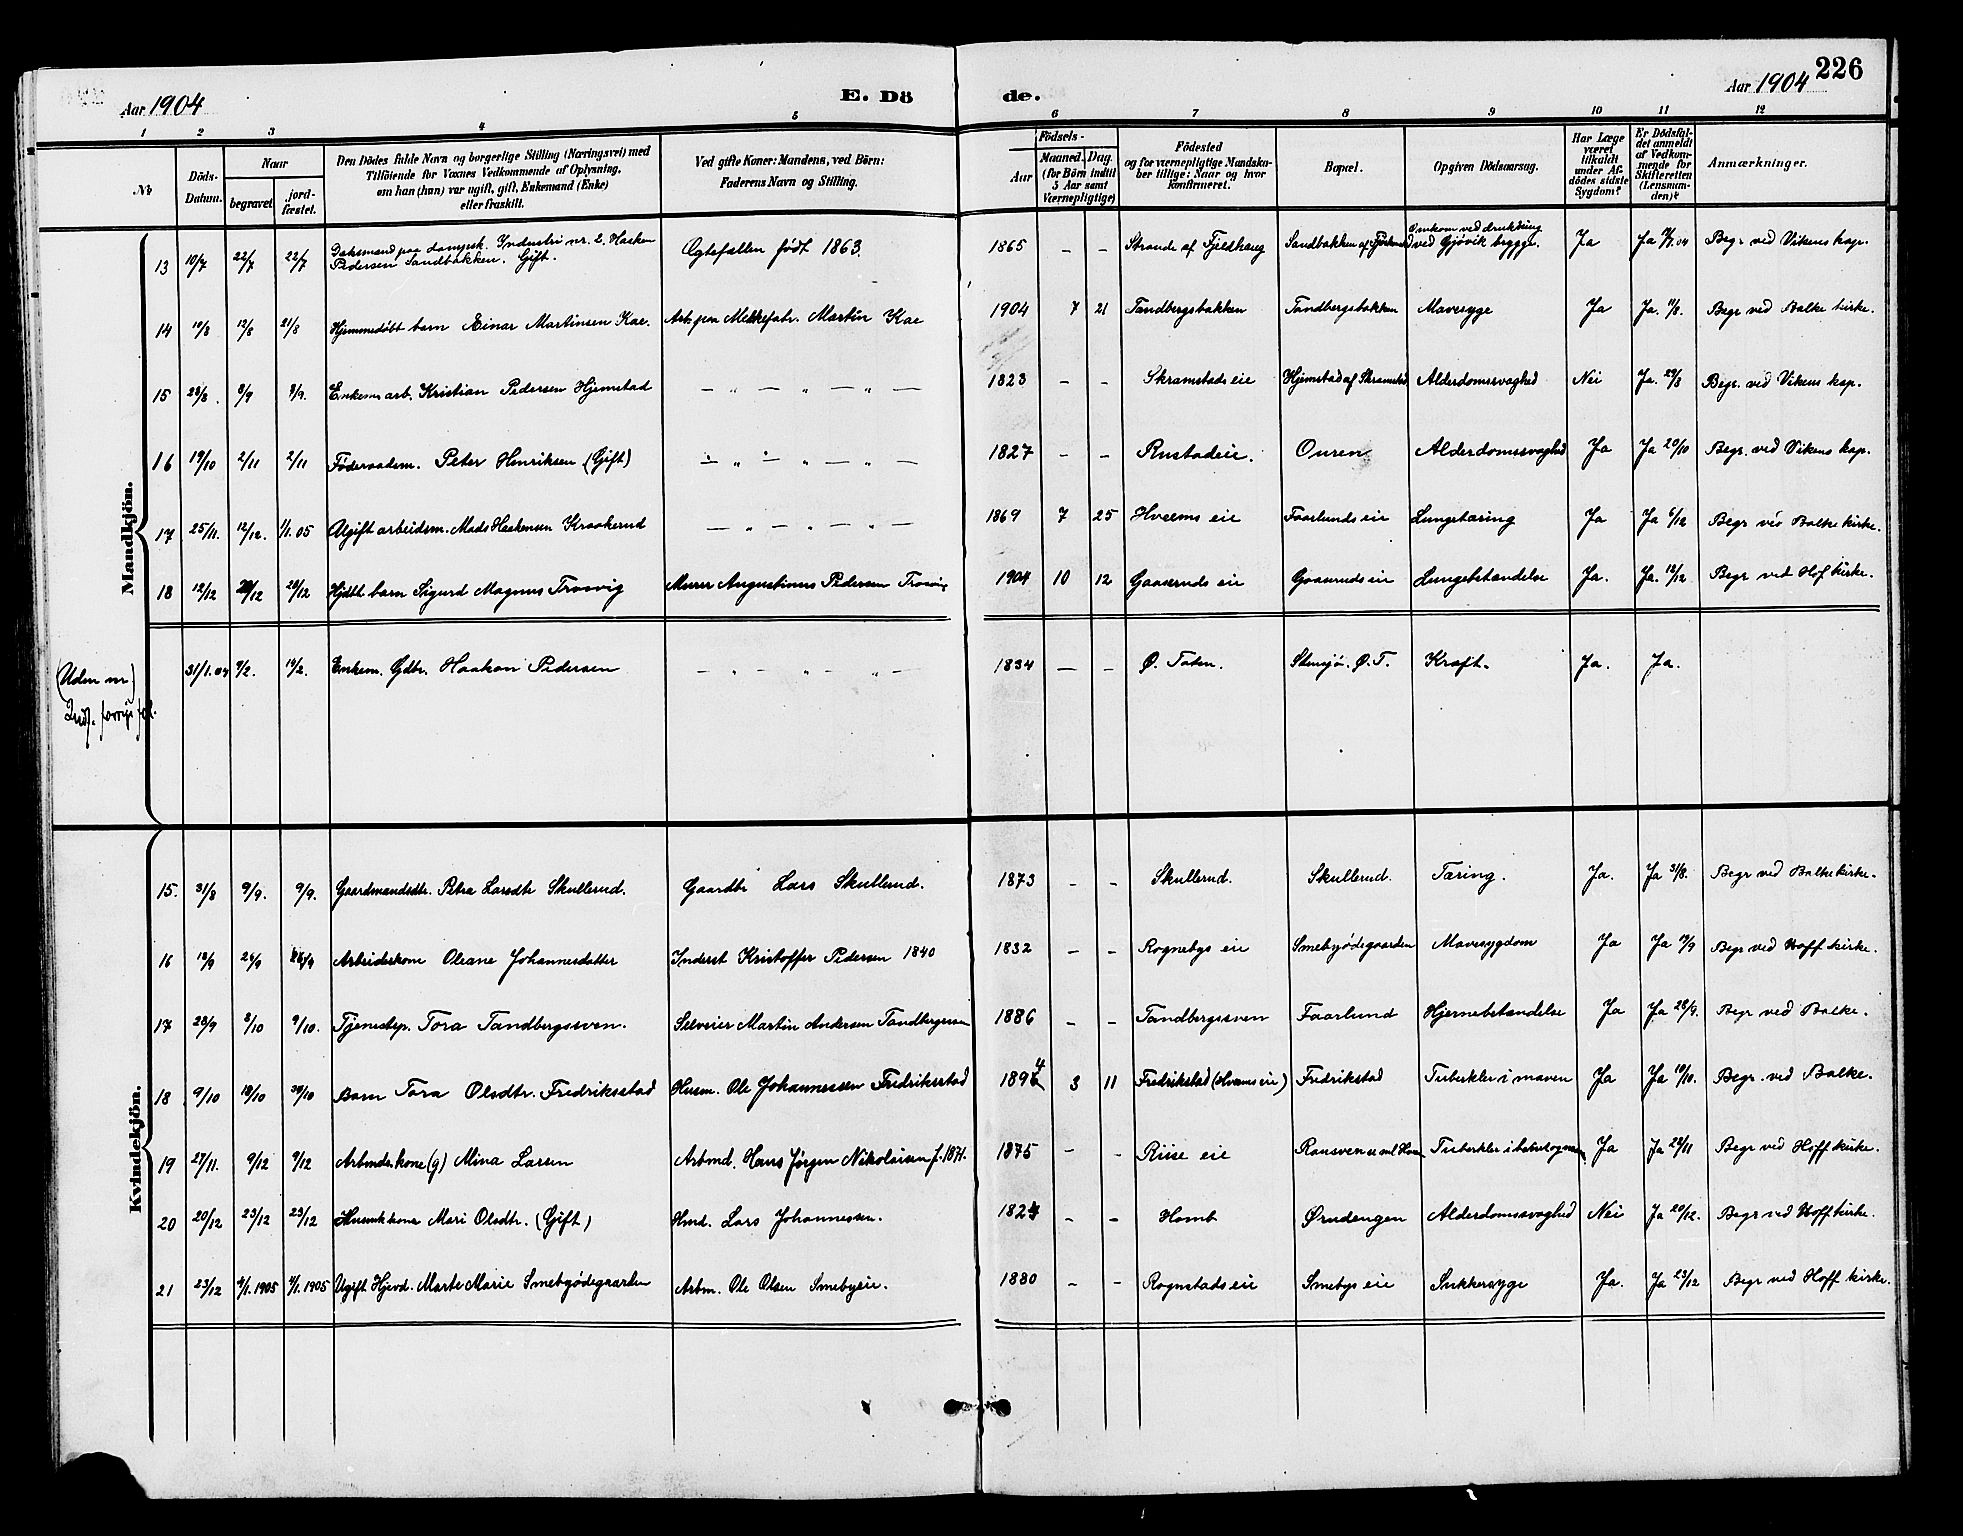 Aar 1904
E. Dö de.
Aar 1904
226
1 2 3 4 5 6 7 8 9 10 11 12
No
Döds-Datum.
Naar
begravet
jordfæstet.
Den Dödes fulde Navn og borgerlige Stilling (Næringsvei) med
Tilföiende for Voxnes Vedkommende af Oplysning,
om han (hun) var ugift, gift, Enkemand (Enke)
eller fraskilt.
Ved gifte Koner: Mandens, ved Börn:
Faderens Navn og Stilling.
Födsels-
Aar
Maaned. Dag.
(for Börn indtil
5 Aar samt
Værnepligtige)
Födested
og for værnepligtige Mandskaber tillige: Naar og hvor
konfirmeret.
Bopæl.
Opgiven Dödsaarsag.
Har Læge været tilkaldt under Afdödes sidste Sygdom?
Er Dödsfaldet anmeldt af Vedkommende for Skifteretten (Lensmanden)?
Anmærkninger.
Mandkjön.
13 10/7 22/7 22/7 Dæksmand paa dampsk. Industri nr. 2. Haaken
Pedersen Sandbakken. Gift. Egtefællen født 1863. 1865 – – Strande af Fjeldhaug Sandbakken af Omkom ved drukning
ved Gjøvik brygge. Ja Ja Begr ved Vikens kap.
14 19/8 21/8 Hjemmedøbt barn Einar Martinsen Kae. Arb. paa Melkefabr. Martin Kae 1904 7 21 Tandbergsbakken Tandbergsbakken Mavesyge Ja Ja. Begr ved Balke kirke.
15 28/8. 8/9 8/9. Enkem arb. Kristian Pedersen Hjemstad – " – " – " – 1823 – – Skramstads eie Hjemstad af Skramstad Alderdomssvaghed Nei Ja. 29/8 Begr. ved Vikens kap.
16 19/10 2/11 2/11 Føderaadsm. Peter Henriksen (Gift) – " – " – " – 1827 – – Rustadeie. Ouren Alderdomssvaghed Ja Ja 20/10 Begr. ved Vikens kap.
17 25/11. 12/12. 1/1. 05 Ugift arbeidsm. Mads Haakensen Kraakerud – " – " – " – 1869 7 25 Hveems eie Faarlunds eie Lungetæring Ja Ja 6/12 Begr ved Balke kirke.
18 12/12 29/12 Hjdbt barn Sigurd Magnus Trosvig Murer Augustinus Pedersen Trosvig 1904 10 12 Gaaseruds eie Gaaseruds eie Lungebetændelse Ja. Ja. 12/12 Begr ved Hof kirke.
(Uden nr)
31/1. 04 9/2. Enkem. Gdbr. Haakon Pedersen – " – " – " – 1834 – – Ø. Toten. Stensjø. Ø. T. Kræft. Ja. Ja.
Kvindekjön.
15. 31/8 9/9. 9/9. Gaardmandsdtr. Petra Larsdtr Skullerud. Gaardbr Lars Skullerud. 1873 – – Skullerud. Skullerud. Tæring. Ja. Ja 31/8. Begr ved Balke kirke.
16 18/9 26/9 Arbeiderkone Oleane Johannesdatter Inderst Kristoffer Pedersen 1840 1832 – – Rognebys eie Smebyødegaarden Mavesygdom Ja Ja Begr ved Hoff kirke.
17 28/9 8/10 9/10. Tjenestep. Tora Tandbergssven. Selveier Martin Andersen Tandbergssven 1886 – – Tandbergssven Faarlund Hjernebetændelse Ja Ja 28/9. Begr ved Balke.
18 9/10 18/10 30/10 Barn Tora Olsdtr. Fredriksstad Husm. Ole Johannessen Fredriksstad 1894 3 11 Fredrikstad (Hveems eie) Fredrikstad Tuberkler i maven Ja Ja 10/10. Begr. ved Balke.
19 27/11. 9/12 9/12 Arbmds.kone (g) Mina Larsen Arbmd. Hans Jørgen Nikolaisen f. 1871. 1875 – – Riise eie Tuberkler i Ja Ja 28/11 Begr ved Hoff kirke.
20 20/12 23/12 23/12 Husmkkone Mari Olsdtr. (Gift) Hmd. Lars Johannessen. 1824 – – Homb Ørudengen Alderdomssvaghed Nei Ja 20/12. Begr ved Hoff kirke.
21 23/12 4/1. 1905 4/1. 1905 Ugift Hjevd. Marte Marie Smebyødegaarden Arbm. Ole Olsen Smebyeie. 1880 – – Rognstads eie Smebys eie Sukkersyge Ja. Ja 23/12 Begr ved Hoff kirke.